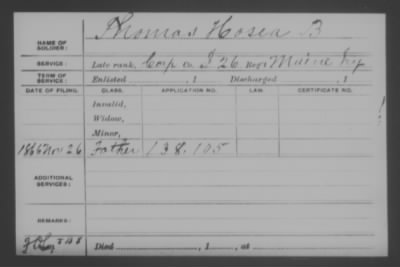 NAME OF SOLDIER: Thomas Hosea B
SERVICE: Late rank, Corp Co. I 26 Reg't Maine Inf
TERM OF SERVICE: Enlisted , 1 Discharged , 1
DATE OF FILING. CLASS. APPLICATION NO. LAW. CERTIFICATE NO.
Invalid,
Widow,
Minor,
1866 Nov 26 Father 138.105
ADDITIONAL SERVICES:
REMARKS:
Died , 1 , at